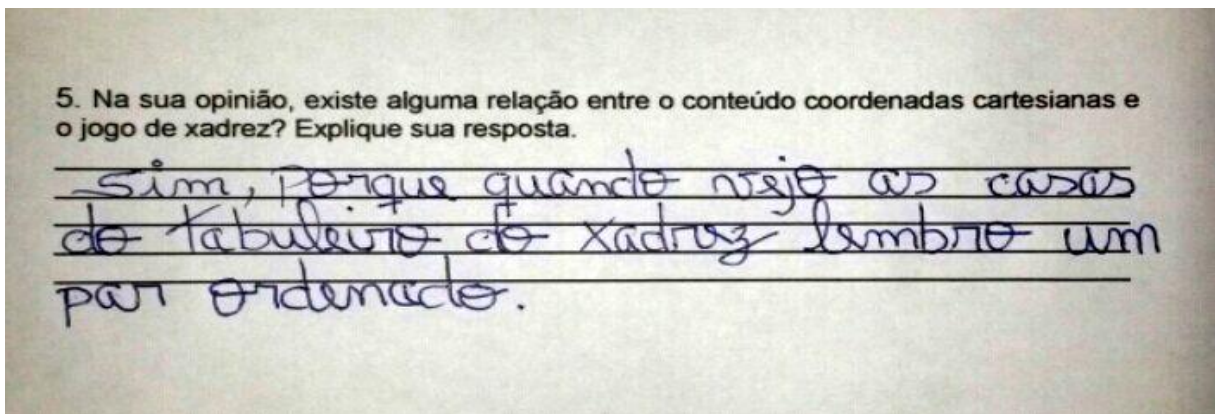 5. Na sua opinião, existe alguma relação entre o conteúdo coordenadas cartesianas e
o jogo de xadrez? Explique sua resposta.
Sim, porque quando vejo as casas
do tabuleiro do xadrez lembro um
par ordenado.